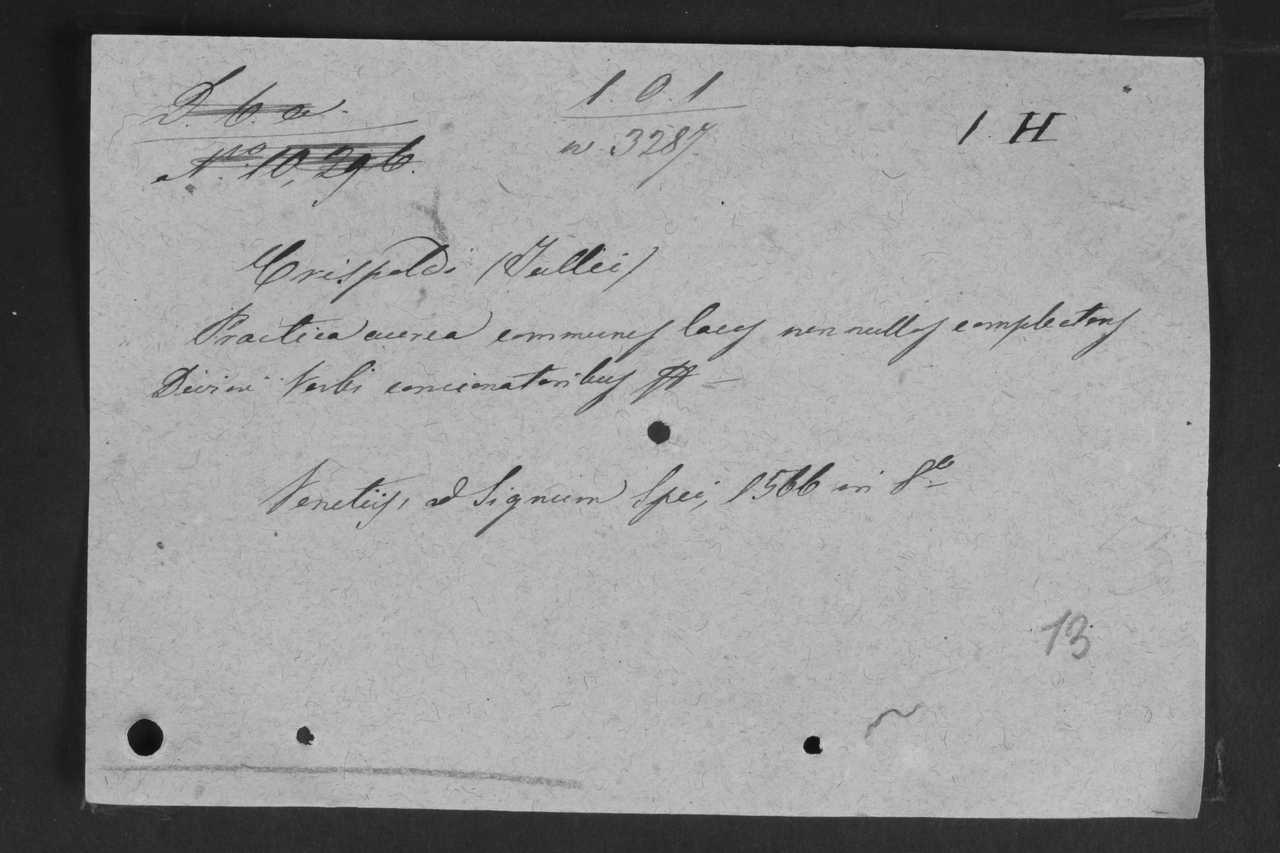 D. 6. a.
1. O. 1
1. H
No. 10,296.
n 3287.
Crispoldi (Tullii)
Practica aurea communes locos nonnullos complectens
Divini Verbi concionatoribus &
Venetiis, ad Signum Spei, 1566 in 8º
13